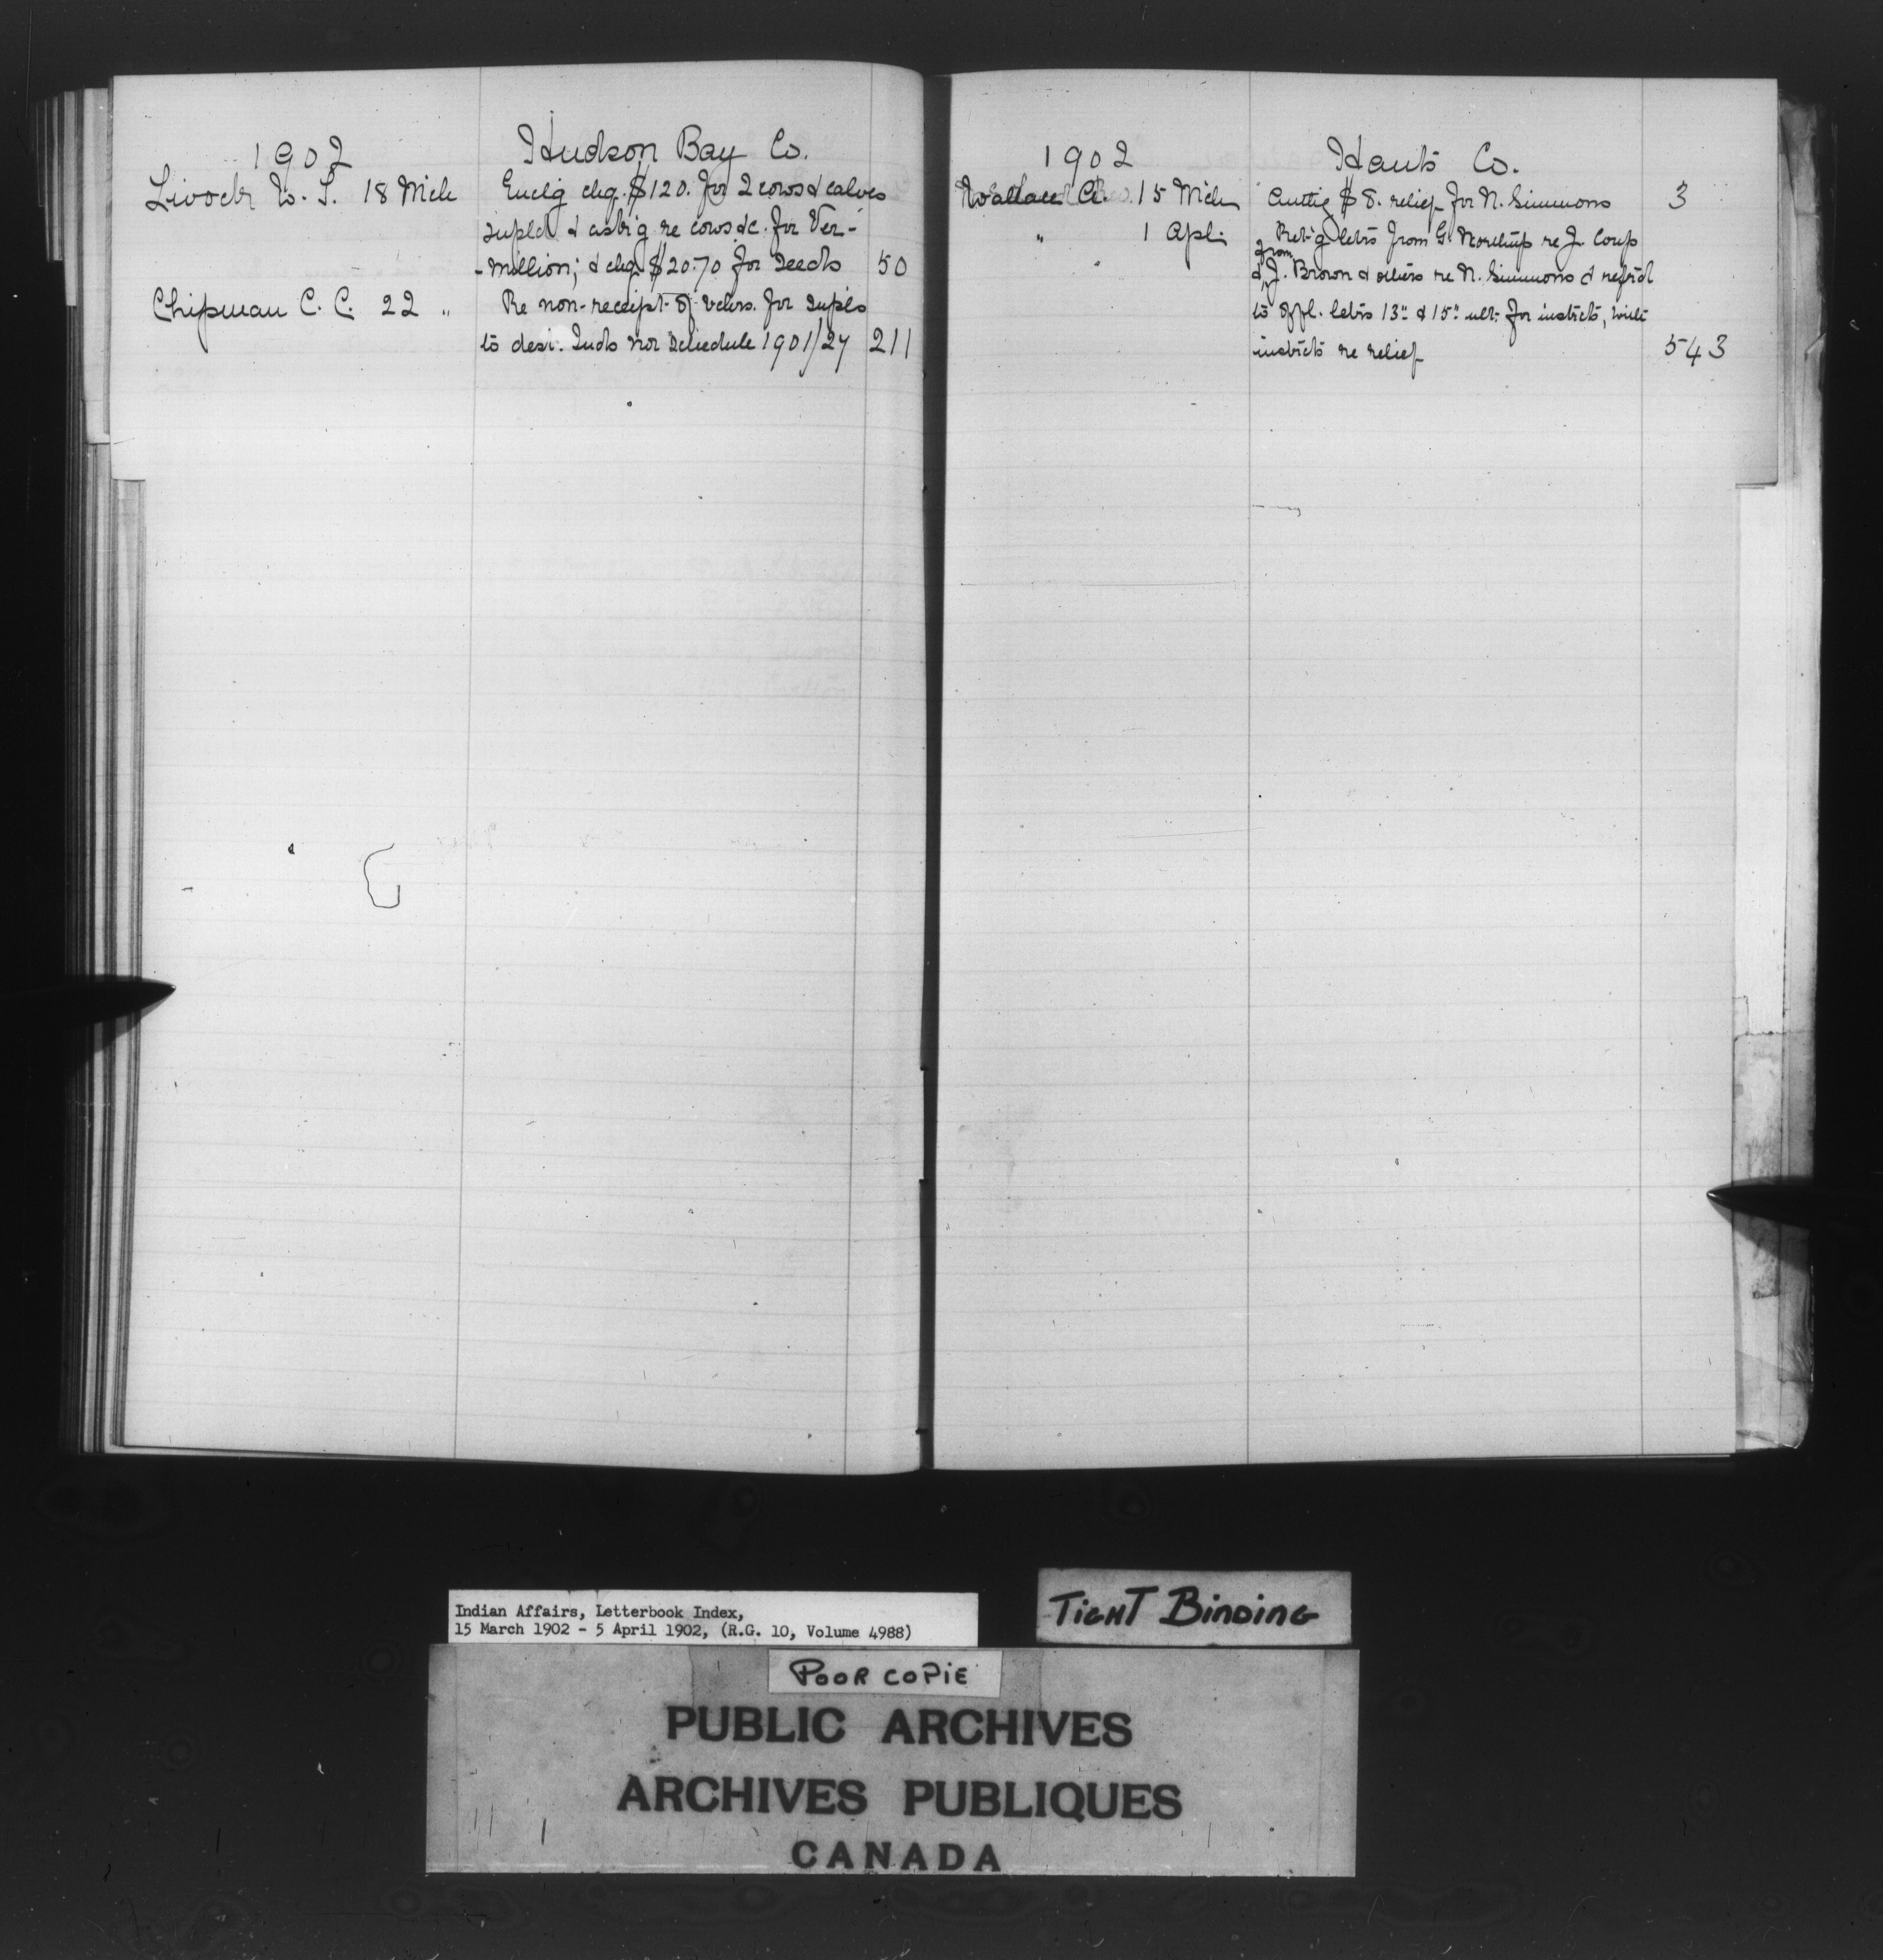 1902 Hudson Bay Co.
Livock W. T. 18 Mch Enclg chq. $120. for 2 cows & calves
supld & askg re cows &c. for Ver-
-million; & chq. $20.70 for seeds 50
Chipman C. C. 22 " Re non-receipt of vchrs. for supls
to dest. Inds nor Schedule 1901/24 211
1902 Hants Co.
Wallace A. 15 Mch Authg $8. relief for N. Simmons 3
" 1 Apl. Ret'g letrs from G. Northup re J. Coup
& from J. Brown & others re N. Simmons & refrd
to offl. letrs 13" & 15" ult. for instrcts, with
instrcts re relief 543
Indian Affairs, Letterbook Index,
15 March 1902 - 5 April 1902, (R.G. 10, Volume 4988)
TIGHT BINDING
POOR COPIE
PUBLIC ARCHIVES
ARCHIVES PUBLIQUES
CANADA